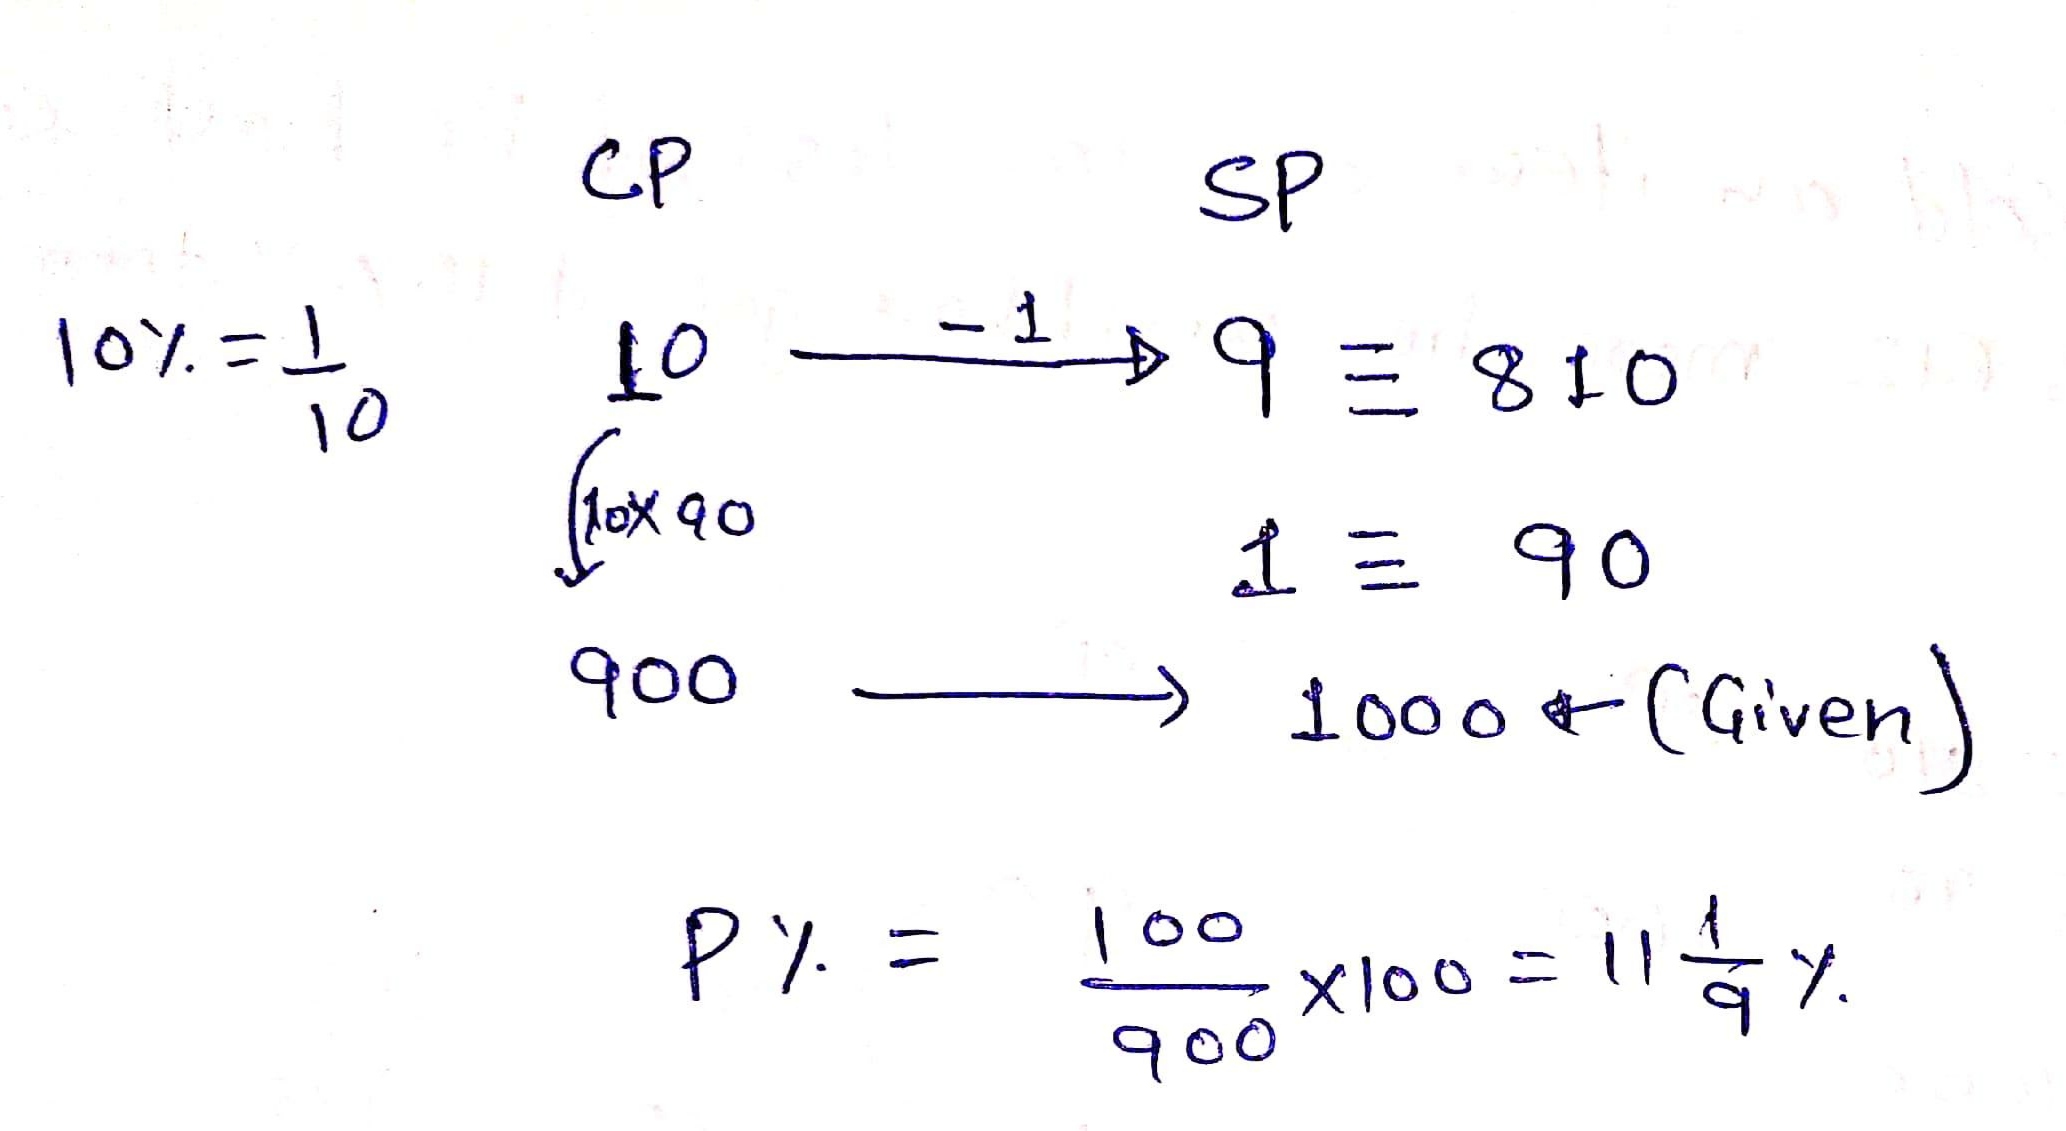 CP SP
10% = 1/10 10 -1 → 9 ≡ 810
10×90
1 ≡ 90
900 → 1000 ← (Given)
P% = 100/900 ×100 = 11 1/9 %